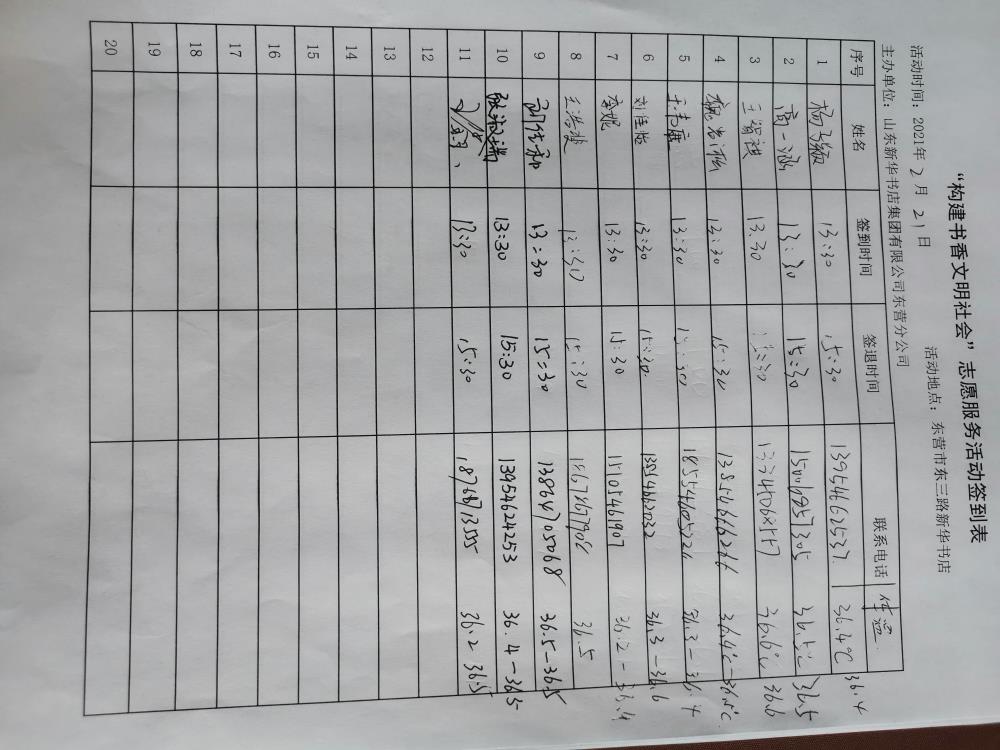 “构建书香文明社会”志愿服务活动签到表
活动时间：2021年2月21日 活动地点：东营市东三路新华书店
主办单位：山东新华书店集团有限公司东营分公司
序号 姓名 签到时间 签退时间 联系电话 体温
1 13:30 15:30 13954662537 36.4℃ 36.4
2 商一涵 13:30 15:30 15006857305 36.5℃ 36.5
3 王智祺 13.30 36.6℃ 36.6
4 13:30 15:30 36.4℃-36.5℃
5 13:30 15:30 18554605226 36.3-36.4
6 刘佳怡 13:30 15:30 13554662032 36.3-36.6
7 李妮 13:30 15:30 15105461907 36.2-36.4
8 王浩楚 13:30 15:30 36.5
9 13:30 15:30 13864705068 36.5-36.5
10 13:30 15:30 13954624253 36.4-36.5
11 13:30 15:30 18768713555 36.2 36.5
12
13
14
15
16
17
18
19
20